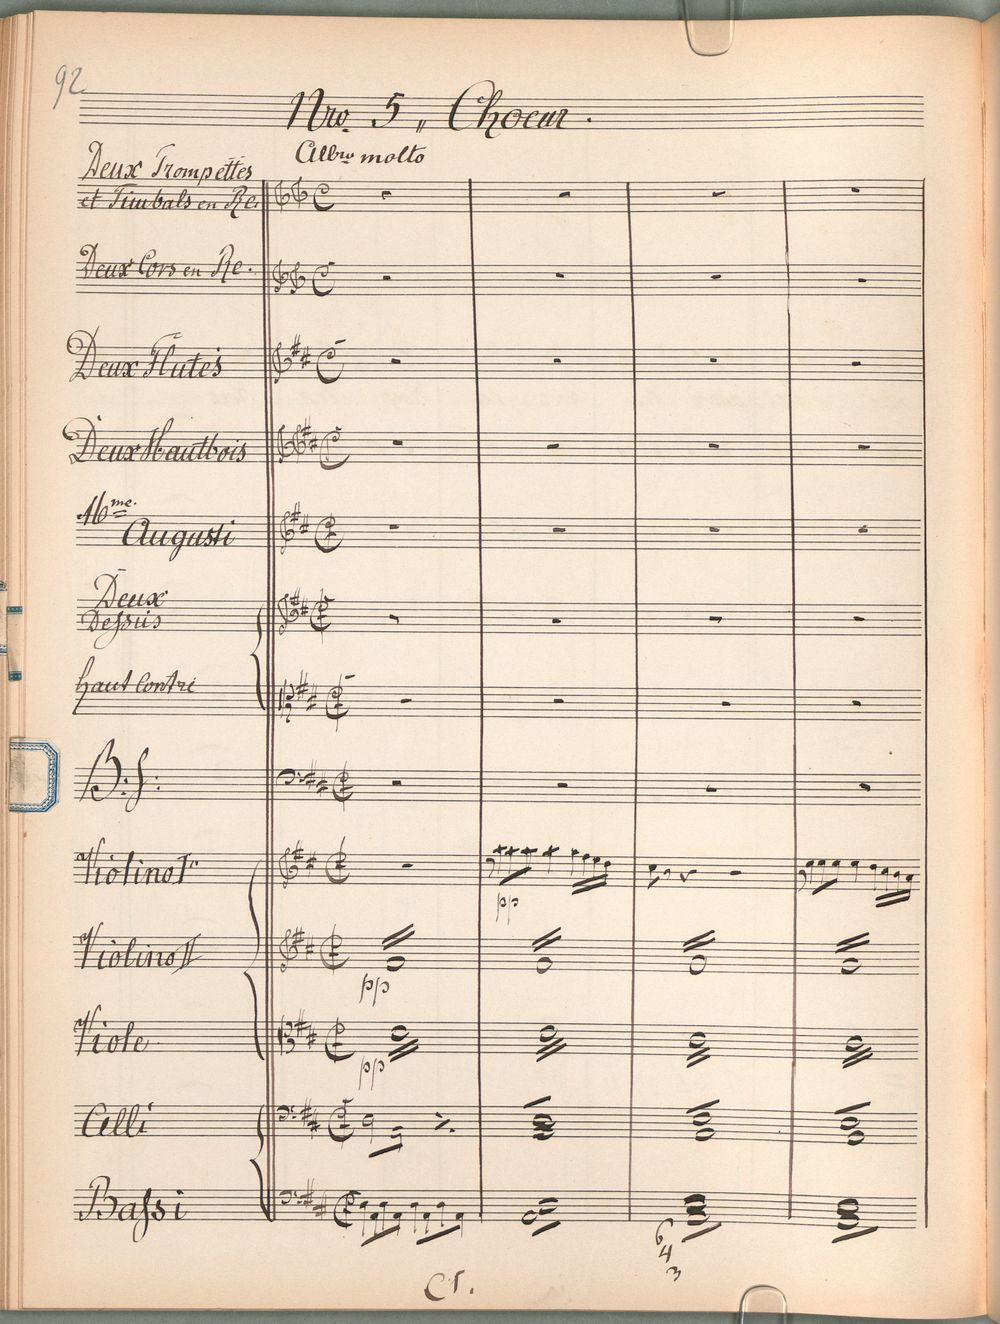 92
Nro. 5 „ Choeur.
Allo. molto
Deux Trompettes
et Timbals en Re.
Deux Cors en Re.
Deux Flutes
Deux Hautbois
Mme.
Augusti
Deux
Dessus
haut Contre
B: f:
Violino Io
Violino II
pp
pp
Viole
pp
Celli
Bassi
6
4
3